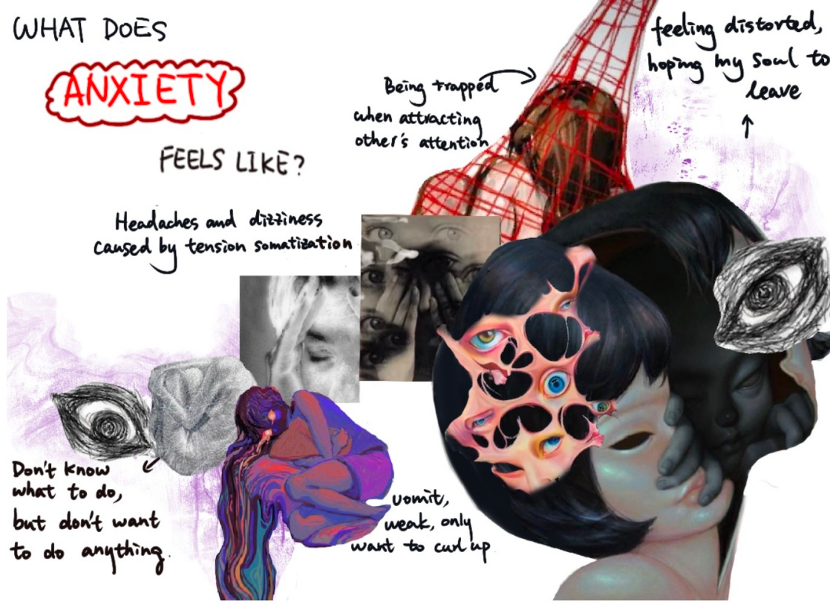 WHAT DOES
ANXIETY
FEELS LIKE?
Being trapped
when attracting
other's attention
feeling distorted,
hoping my soul to
leave
Headaches and dizziness
caused by tension somatization
Don't know
what to do,
but don't want
to do anything.
vomit,
weak, only
want to curl up